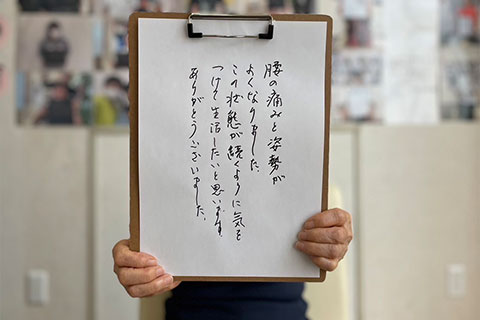 腰の痛みと姿勢が
よくなりました。
この状態が続くように気を
つけて生活したいと思います。
ありがとうございました。